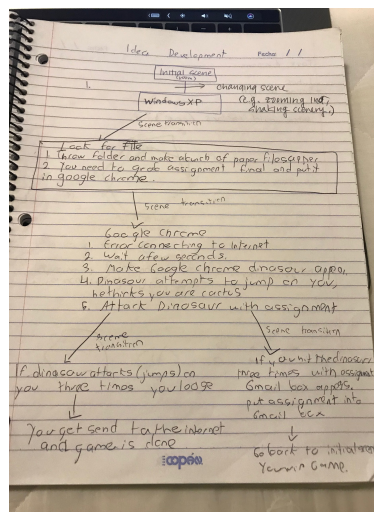 Idea Development
/ /
Initial scene
1.
changing scene
Windows XP
(e.g. zooming in,
shaking scenery.)
Scene transition
Look for File
1. throw folder and make a bunch of paper files appear
2. You need to grab assignment final and put it
in google chrome.
Scene transition
Google Chrome
1. Error connecting to Internet
2. Wait a few seconds.
3. Make Google chrome dinasour appear
4. Dinasour attempts to jump on you,
he thinks you are cactus
5. Attack Dinasour with assignment
Scene transition
Scene transition
If dinasour attacks (jumps) on
you three times you loose
You get send to the internet
and game is done
If you hit the dinasour
three times with assignment
Gmail box appears.
put assignment into
Gmail box
Go back to initial
You win Game.